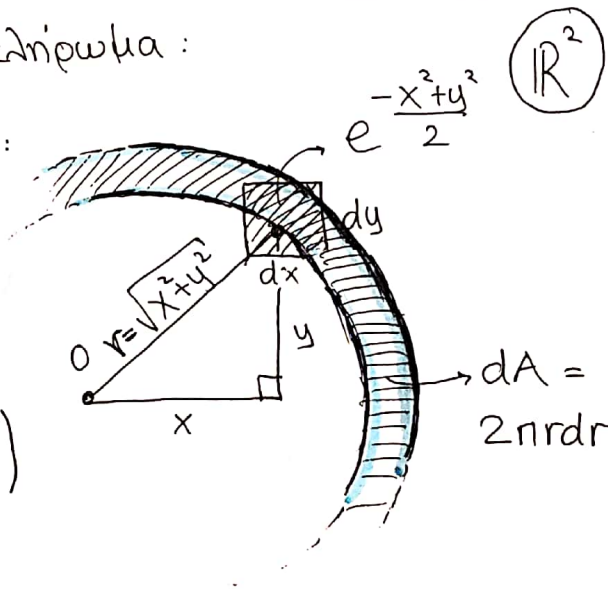 λήρωμα :
ℝ²
:
e^{-\frac{x²+y²}{2}}
dy
dx
r=√x²+y²
y
O
x
dA =
2πrdr
)